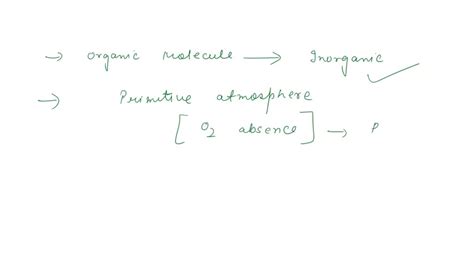 → Organic molecule → Inorganic ✓
→ Primitive atmosphere
[O₂ absence] → P